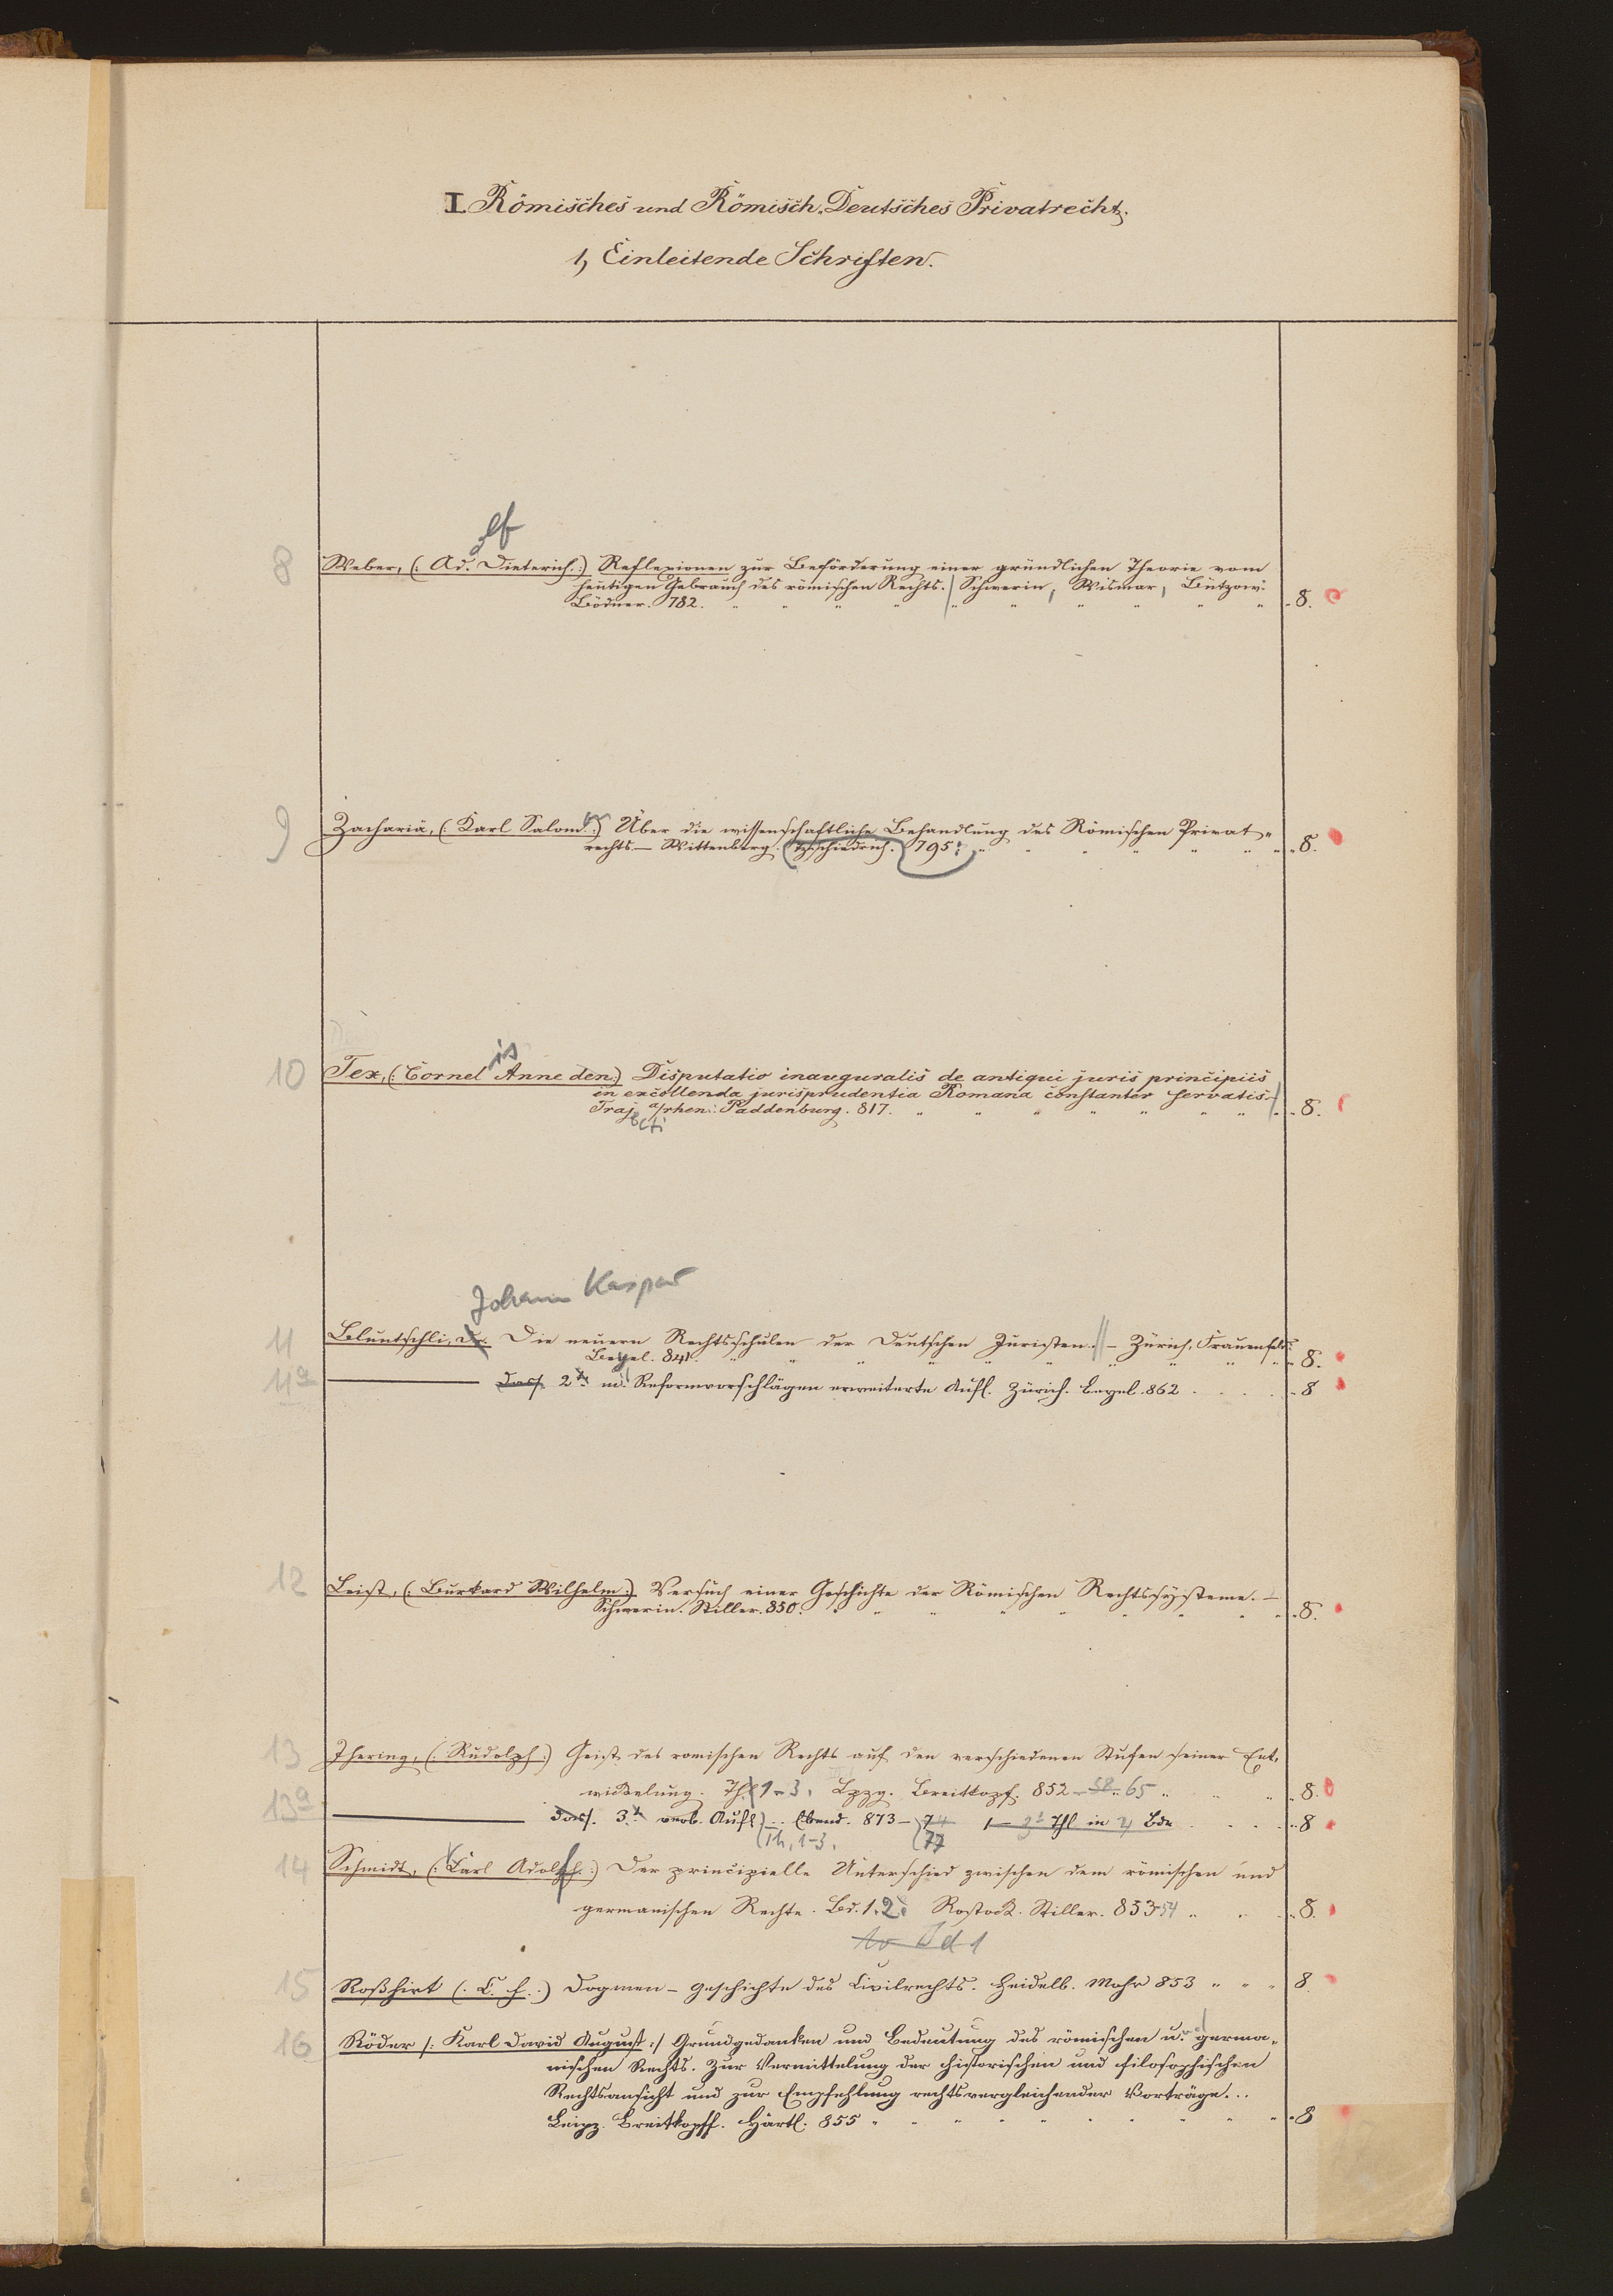 I. Römisches und Römisch-Deutsches Privatrecht.
1, Einleitende Schriften.
olf
8 Weber, (: Ad. Dieterich :) Reflexionen zur Beförderung einer gründlichen Theorie vom
heutigen Gebrauch des römischen Rechts. Schwerin, Wismar, Bützow.
Bödner. 782. 8.
9 Zachariä, (: Karl Salom. :) Über die wissenschaftliche Behandlung des Römischen Privat-
rechts. — Wittenberg. (Tzschiedrich. 795. 8.
is
10 Tex, (: Cornel Anne den :) Disputatio inauguralis de antiqui juris principiis
in excollenda jurisprudentia Romana constanter servatis. —
Traj. a/rhen: Paddenburg. 817. 8.
ecti
Johann Kaspar
11 Bluntschli, Dr. Die neuern Rechtsschulen der Deutschen Juristen. — Zürich, Frauenfeld.
Beyel. 841. 8.
11a Dass. 2te m. Reformvorschlägen erweiterte Aufl. Zürich. Beyel. 862 8
12 Leist, (: Burkard Wilhelm :) Versuch einer Geschichte der Römischen Rechtssysteme. —
Schwerin. Stiller. 850. 8.
13 Jhering, (: Rudolph :) Geist des romischen Rechts auf den verschiedenen Stufen seiner Ent-
wickelung. Thl 1-3. Lpzg. Breitkopf. 852 - 58 - 65 8.
13a Dass. 3te verb. Aufl. Ebend. 873 - 74 1 - 3t Thl in 4 Bde 8
Th. 1-3. 77
14 Schmidt, (: Karl Adolph :) Der principielle Unterschied zwischen dem römischen und
germanischen Rechte. Bd. 1.2. Rostock. Stiller. 853-54 8.
Bd 1
15 Roßhirt (: C. F. :) Dogmen-Geschichte des Civilrechts. Heidelb. Mohr 853 8.
16 Röder /: Karl David August :/ Grundgedanken und Bedeutung des römischen u. germa-
nischen Rechts. Zur Vermittelung der historischen und filosophischen
Rechtsansicht und zur Empfehlung rechtsvergleichender Vorträge...
Leipz. Breitkopff. Härtl. 855 8